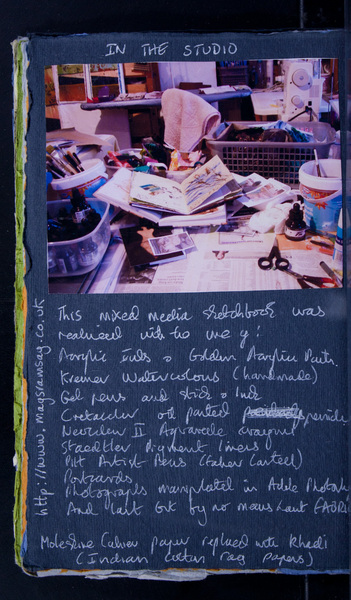 IN THE STUDIO
This mixed media sketchbook was
realised with the use of!
Acrylic Inks & Golden Acrylic Paints.
Kremer Watercolours (handmade)
Gel pens and Stick & Ink
Cretacolor oil pencils
Neocolor II Aquarelle crayons
Staedtler Pigment liners
Pitt Artist Pens (Faber Castell)
Postcards
Photographs manipulated in Adobe Photosh
And last but by no means least FABRI
Moleskine Cahier paper replaced with Khadi
(Indian cotton rag papers)
http://www.magsramsay.co.uk